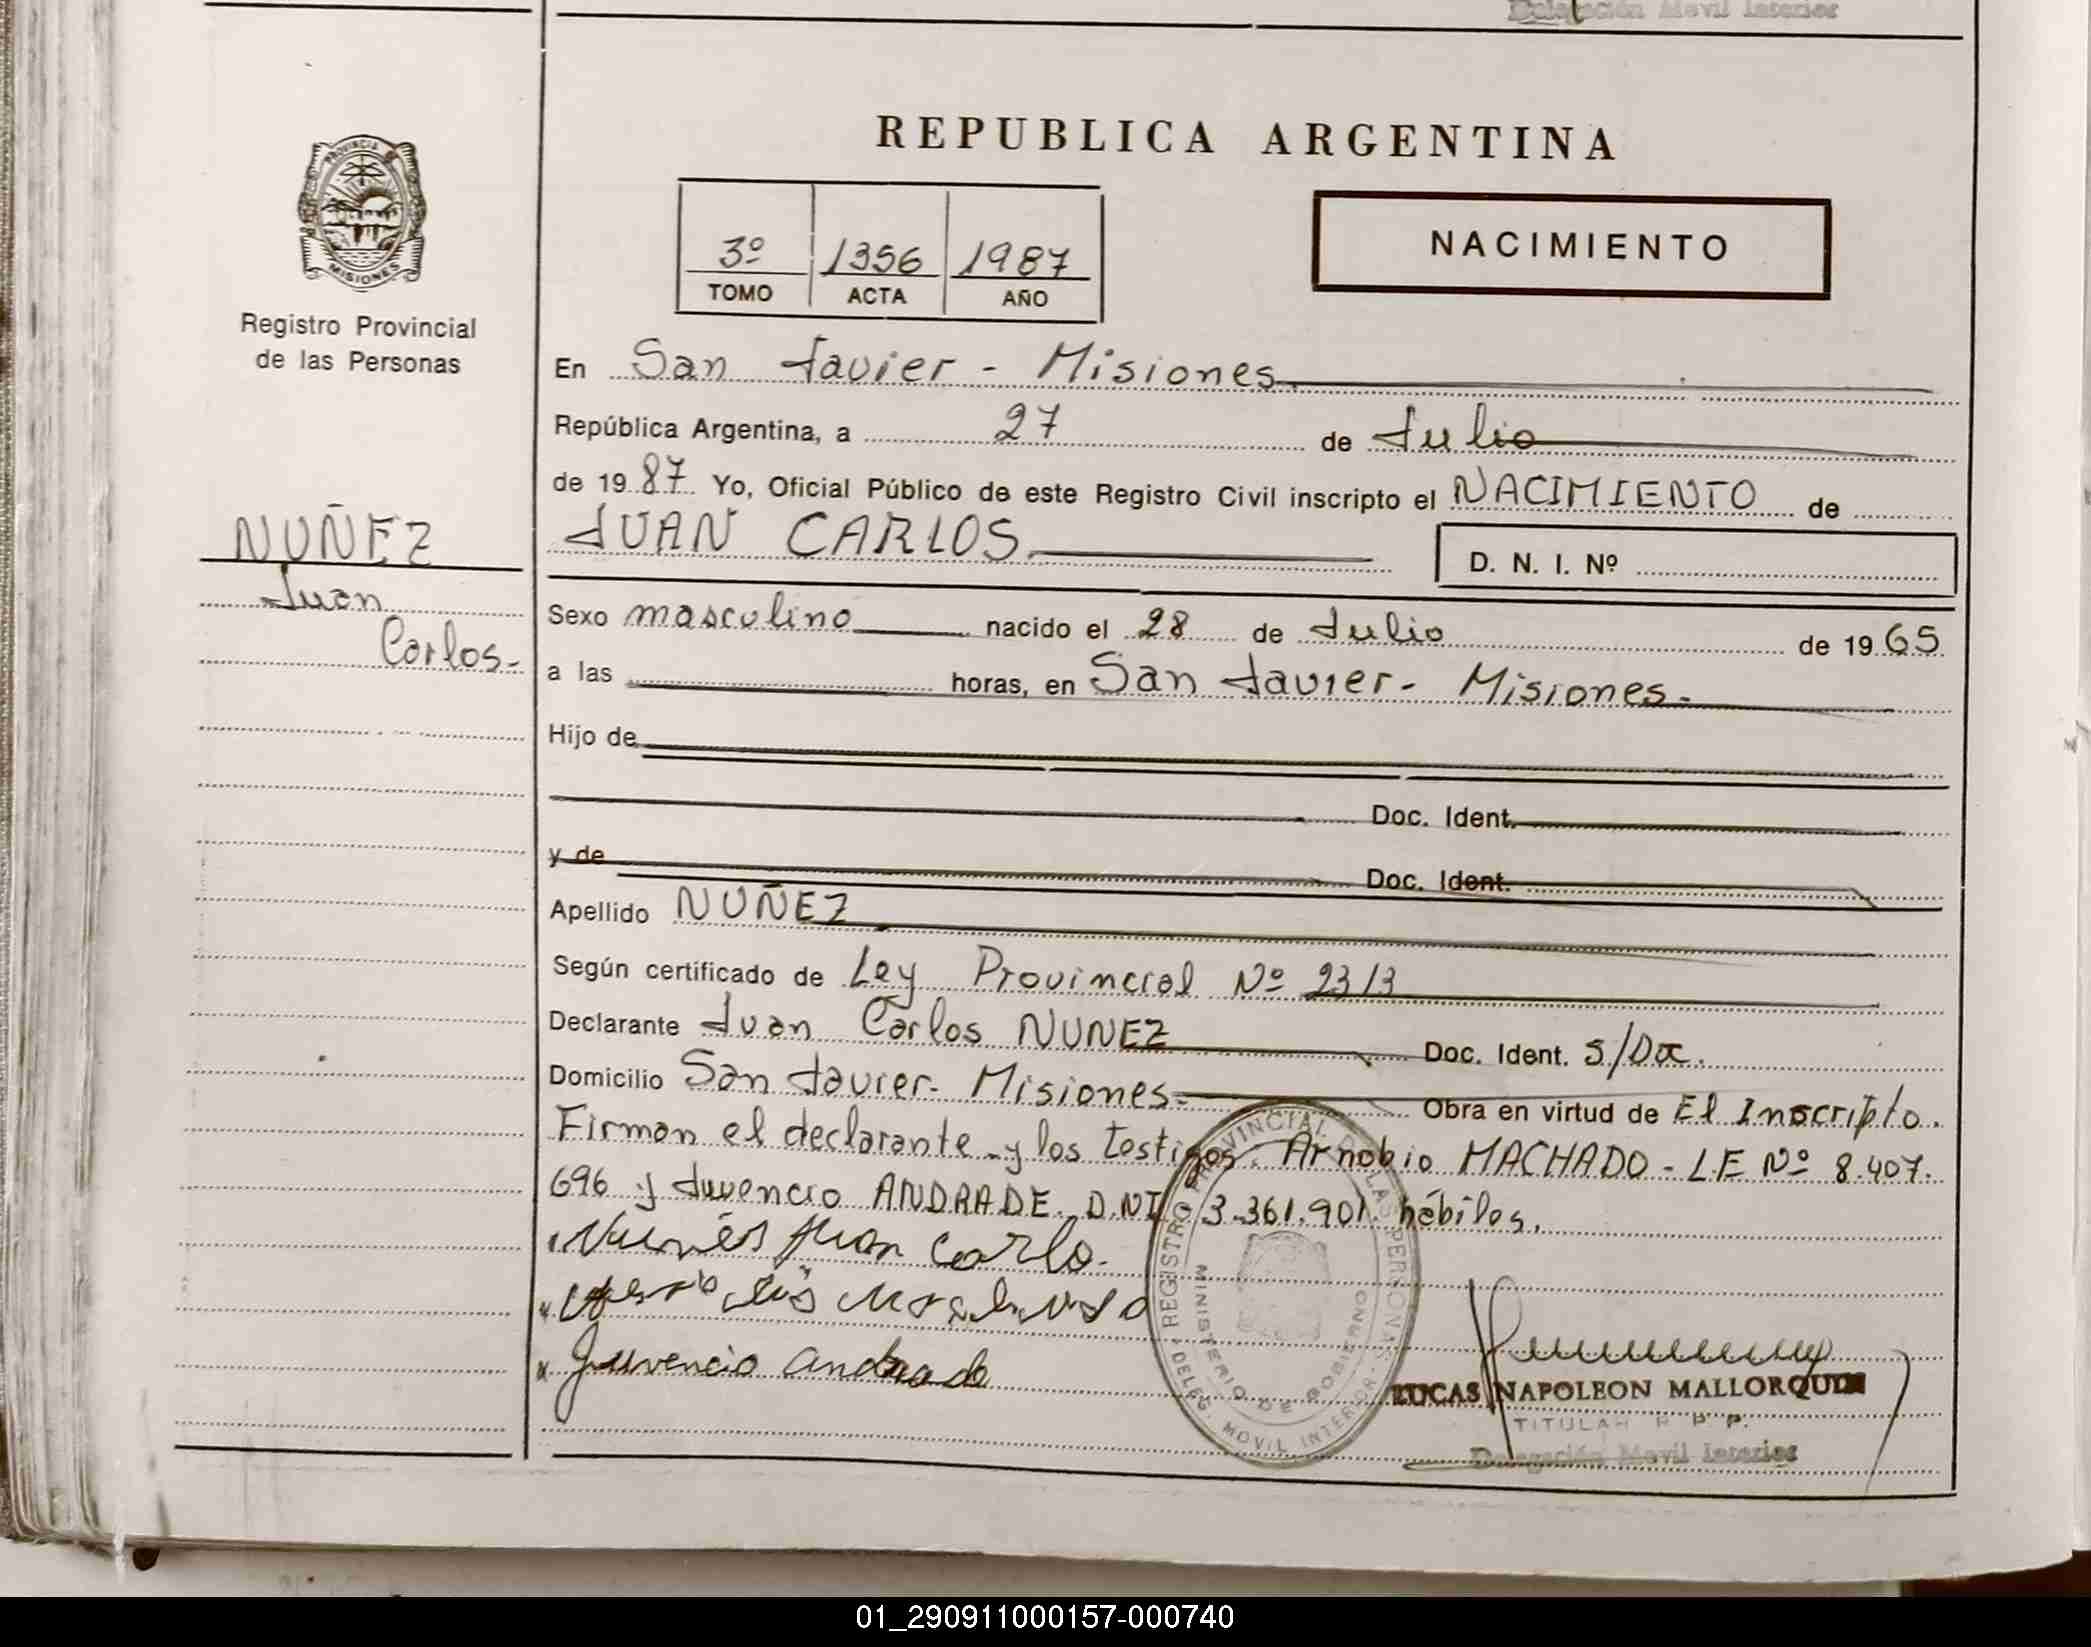 Delegación Movil Interior
REPUBLICA ARGENTINA
PROVINCIA DE
MISIONES
Registro Provincial
de las Personas
3º 1356 1987
TOMO ACTA AÑO
NACIMIENTO
En San Javier - Misiones.
República Argentina, a 27 de Julio
de 1987 Yo, Oficial Público de este Registro Civil inscripto el NACIMIENTO de
NUÑEZ
Juan
Carlos-
JUAN CARLOS
D. N. I. Nº
Sexo masculino nacido el 28 de Julio de 1965
a las horas, en San Javier - Misiones-
Hijo de
Doc. Ident.
y de Doc. Ident.
Apellido NUÑEZ
Según certificado de Ley Provincial Nº 2313
Declarante Juan Carlos NUNEZ Doc. Ident. S/Doc.
Domicilio San Javier- Misiones- Obra en virtud de El Inscripto.
Firman el declarante y los testigos. Arnobio MACHADO - L.E Nº 8.407.
696 y Juvencio ANDRADE. D.NI 3.361.901. hábiles.
Nunes Juan Carlo.
Juvencio andrade
REGISTRO PROVINCIAL DE LAS PERSONAS
MINISTERIO DE GOBIERNO
DELEG. MOVIL INTERIOR
LUCAS NAPOLEON MALLORQUIN
TITULAR R P P.
Delegación Movil Interior
01_290911000157-000740